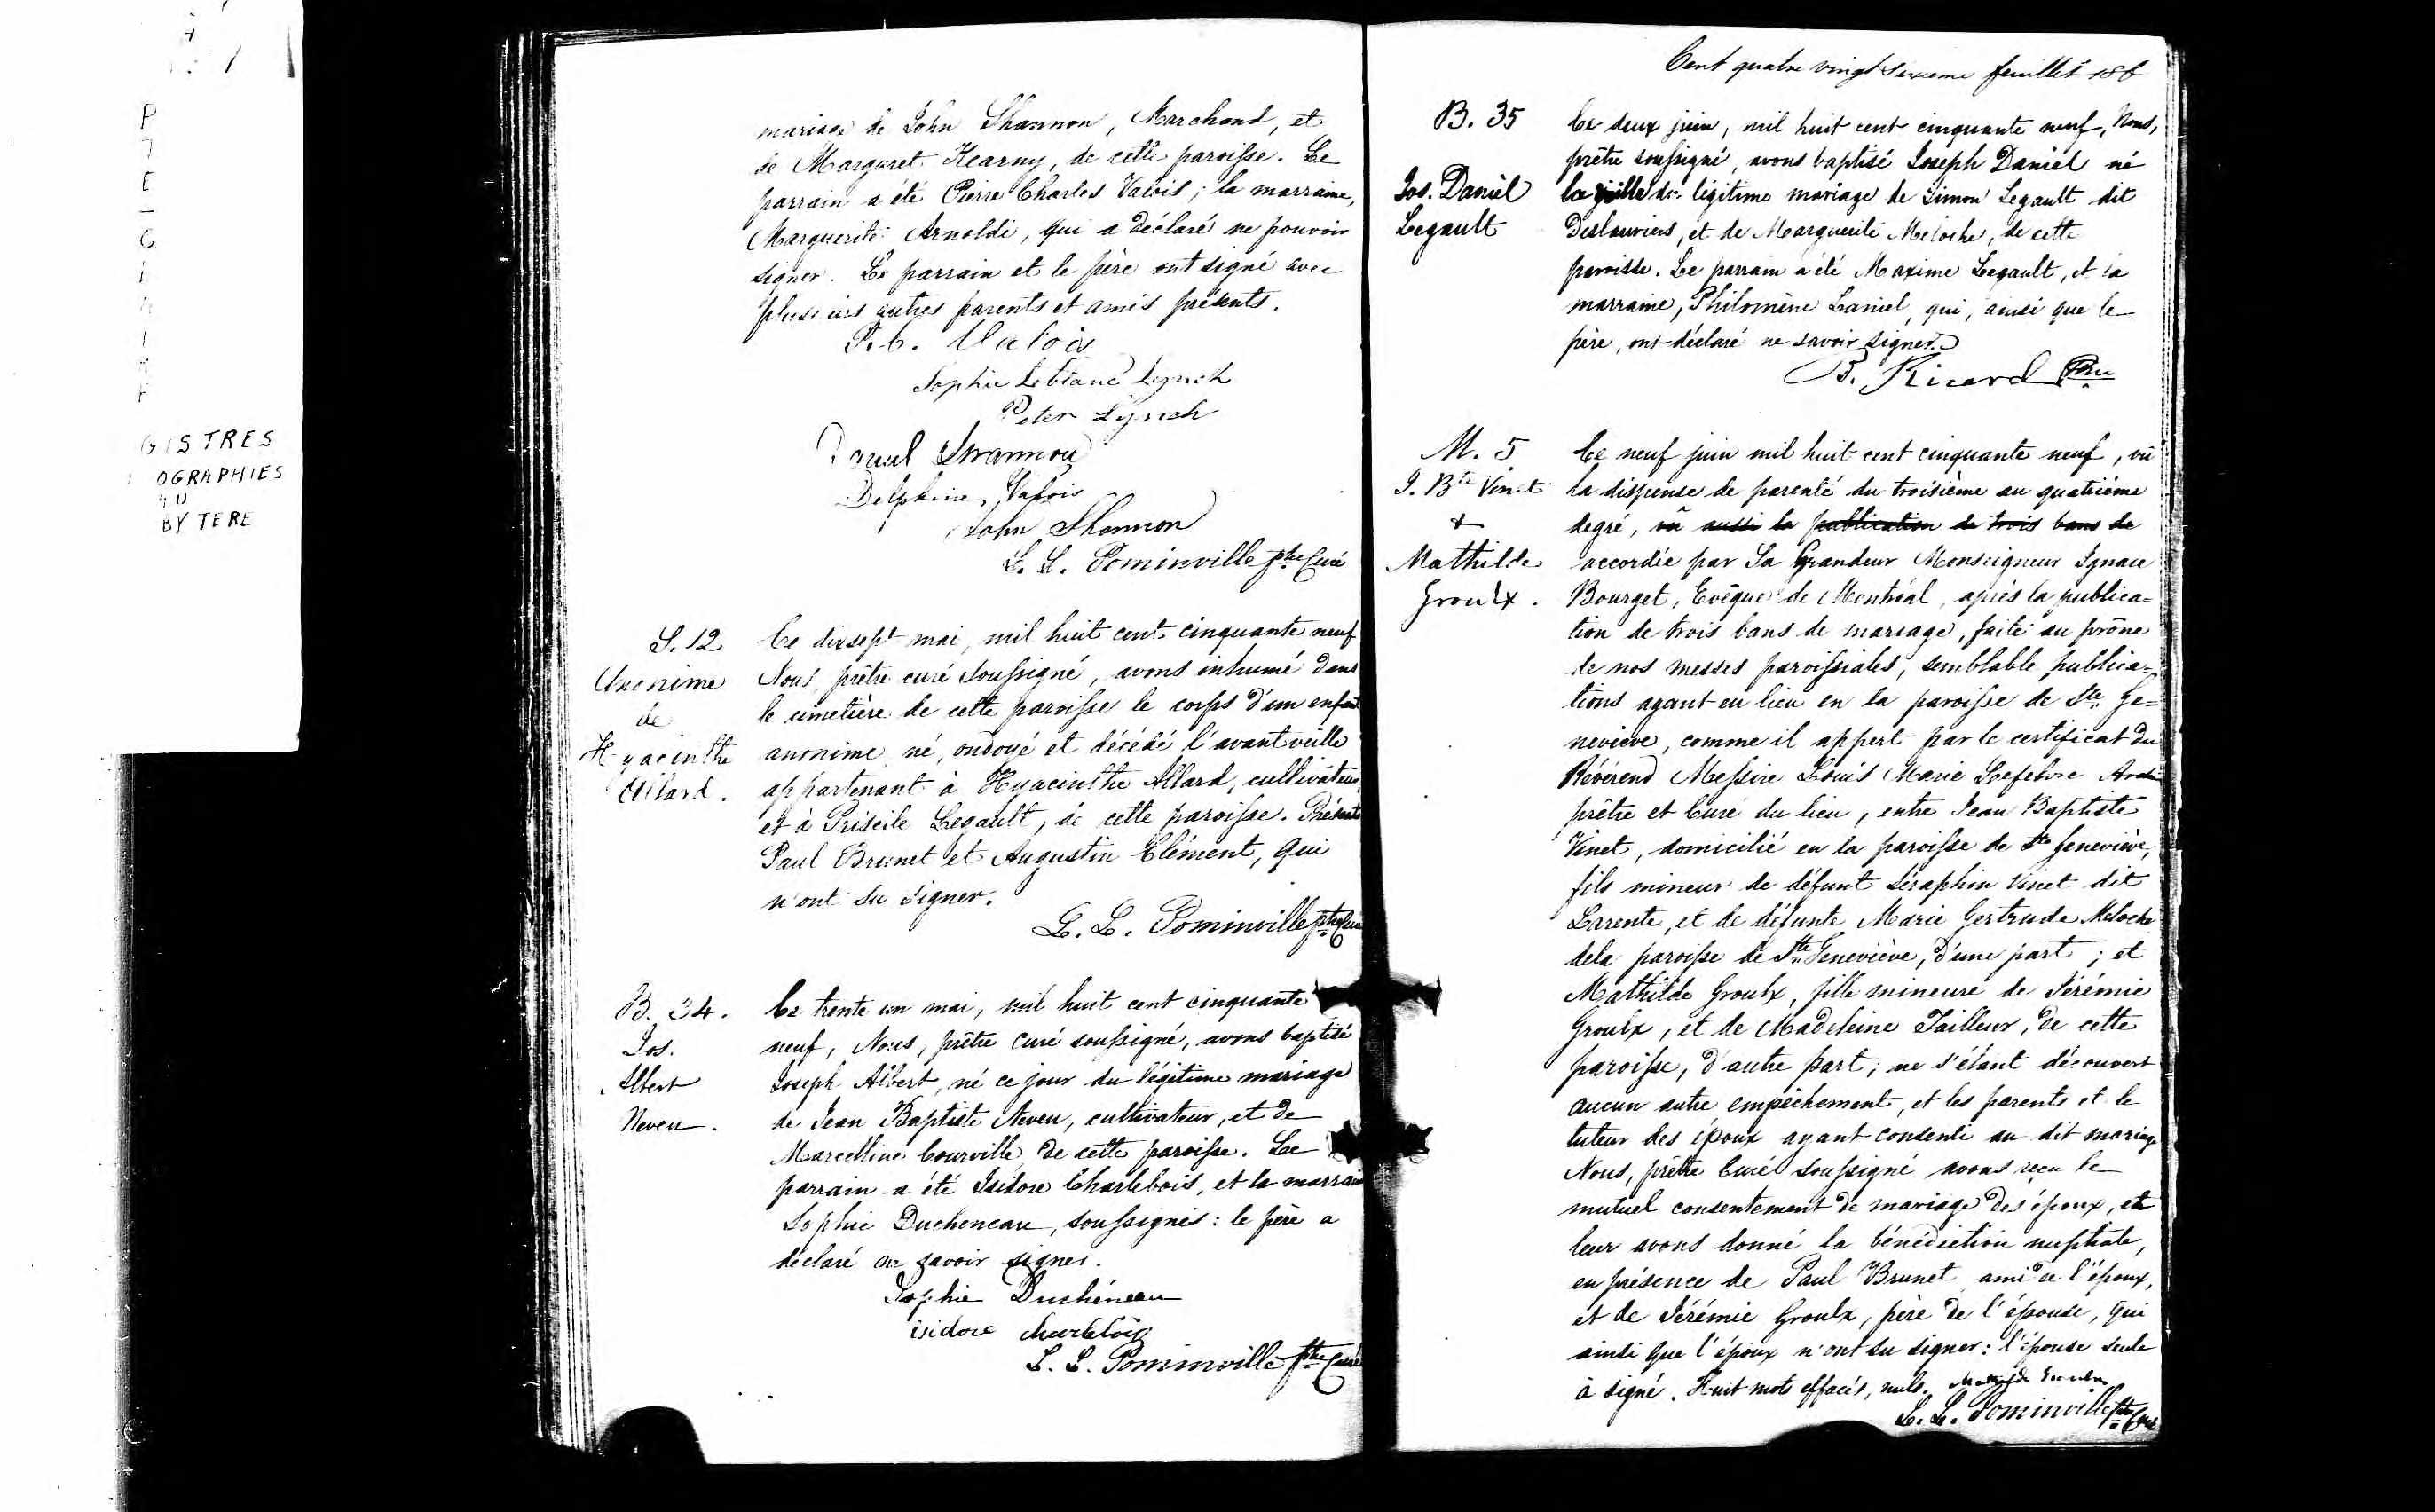 P
E
GISTRES
OGRAPHIES
BY TERE
mariage de John Shannon, Marchand, et
de Margaret Kearny, de cette paroisse. Le
parrain a été Pierre Charles Valois; la marraine,
Marguerite Arnoldi, qui a déclaré ne pouvoir
signer. Le parrain et le père ont signé avec
plusieurs autres parents et amis présents.
P. C. Valois
Sophie Leblanc Lynch
Peter Lynch
Daniel Shannon
Delphine Valois
John Shannon
L. L. Pominville ptre Curé
S. 12
Anonime
de
Hyacinthe
Allard.
Ce dixsept mai, mil huit cent cinquante neuf
Nous, prêtre curé soussigné, avons inhumé dans
le cimetière de cette paroisse le corps d'un enfant
anonime né, ondoyé et décédé l'avant veille
appartenant à Hyacinthe Allard, cultivateur,
et à Priscile Legault, de cette paroisse. Présents
Paul Brunet et Augustin Clément, qui
n'ont su signer.
L. L. Pominville ptre Curé
B. 34.
Jos.
Albert
Neveu.
Ce trente un mai, mil huit cent cinquante
neuf, Nous, prêtre curé soussigné, avons baptisé
Joseph Albert, né ce jour du légitime mariage
de Jean Baptiste Neveu, cultivateur, et de
Marcelline Courville de cette paroisse. Le
parrain a été Isidore Charlebois, et la marraine
Sophie Ducheneau, soussignés: le père a
déclaré ne savoir signer.
Sophie Duchéneau
isidore charlebois
L. L. Pominville ptre Curé
Cent quatre vingt sixieme feuillet 186
B. 35
Jos. Daniel
Legault
Ce deux juin, mil huit cent cinquante neuf, Nous,
prêtre soussigné, avons baptisé Joseph Daniel né
la veille du légitime mariage de Simon Legault dit
Deslauriers, et de Marguerite Meloche, de cette
paroisse. Le parrain a été Maxime Legault, et la
marraine, Philomène Daniel, qui, ainsi que le
père, ont déclaré ne savoir signer.
B. Ricard Ptre
M. 5
J. Bte Vinet
+
Mathilde
Groulx.
Ce neuf juin mil huit cent cinquante neuf, vû
la dispense de parenté du troisième au quatrième
degré, vû aussi la publication de trois bans de
accordée par Sa Grandeur Monseigneur Ignace
Bourget, Evêque de Montréal, après la publica=
tion de trois bans de mariage, faite au prône
de nos messes paroissiales, semblable publica=
tions ayant eu lieu en la paroisse de Ste Ge=
neviève, comme il appert par le certificat du
Révérend Messire Louis Marie Lefebvre
prêtre et Curé du lieu, entre Jean Baptiste
Vinet, domicilié en la paroisse de Ste Geneviève,
fils mineur de défunt Séraphin Vinet dit
Larente, et de défunte Marie Gertrude Meloche
dela paroisse de Ste Geneviève, d'une part; et
Mathilde Groulx, fille mineure de Jérémie
Groulx, et de Madeleine Tailleur, de cette
paroisse, d'autre part; ne s'étant découvert
aucun autre empêchement, et les parents et le
tuteur des époux ayant consenti au dit mariage
Nous, prêtre Curé soussigné avons reçu le
mutuel consentement de mariage des époux, et
leur avons donné la bénédiction nuptiale,
en présence de Paul Brunet ami de l'époux,
et de Jérémie Groulx, père de l'épouse, qui
ainsi que l'époux n'ont su signer: l'épouse seule
à signé. Huit mots effacés, nuls. Mathilde Groulx
L. L. Pominville ptre Curé